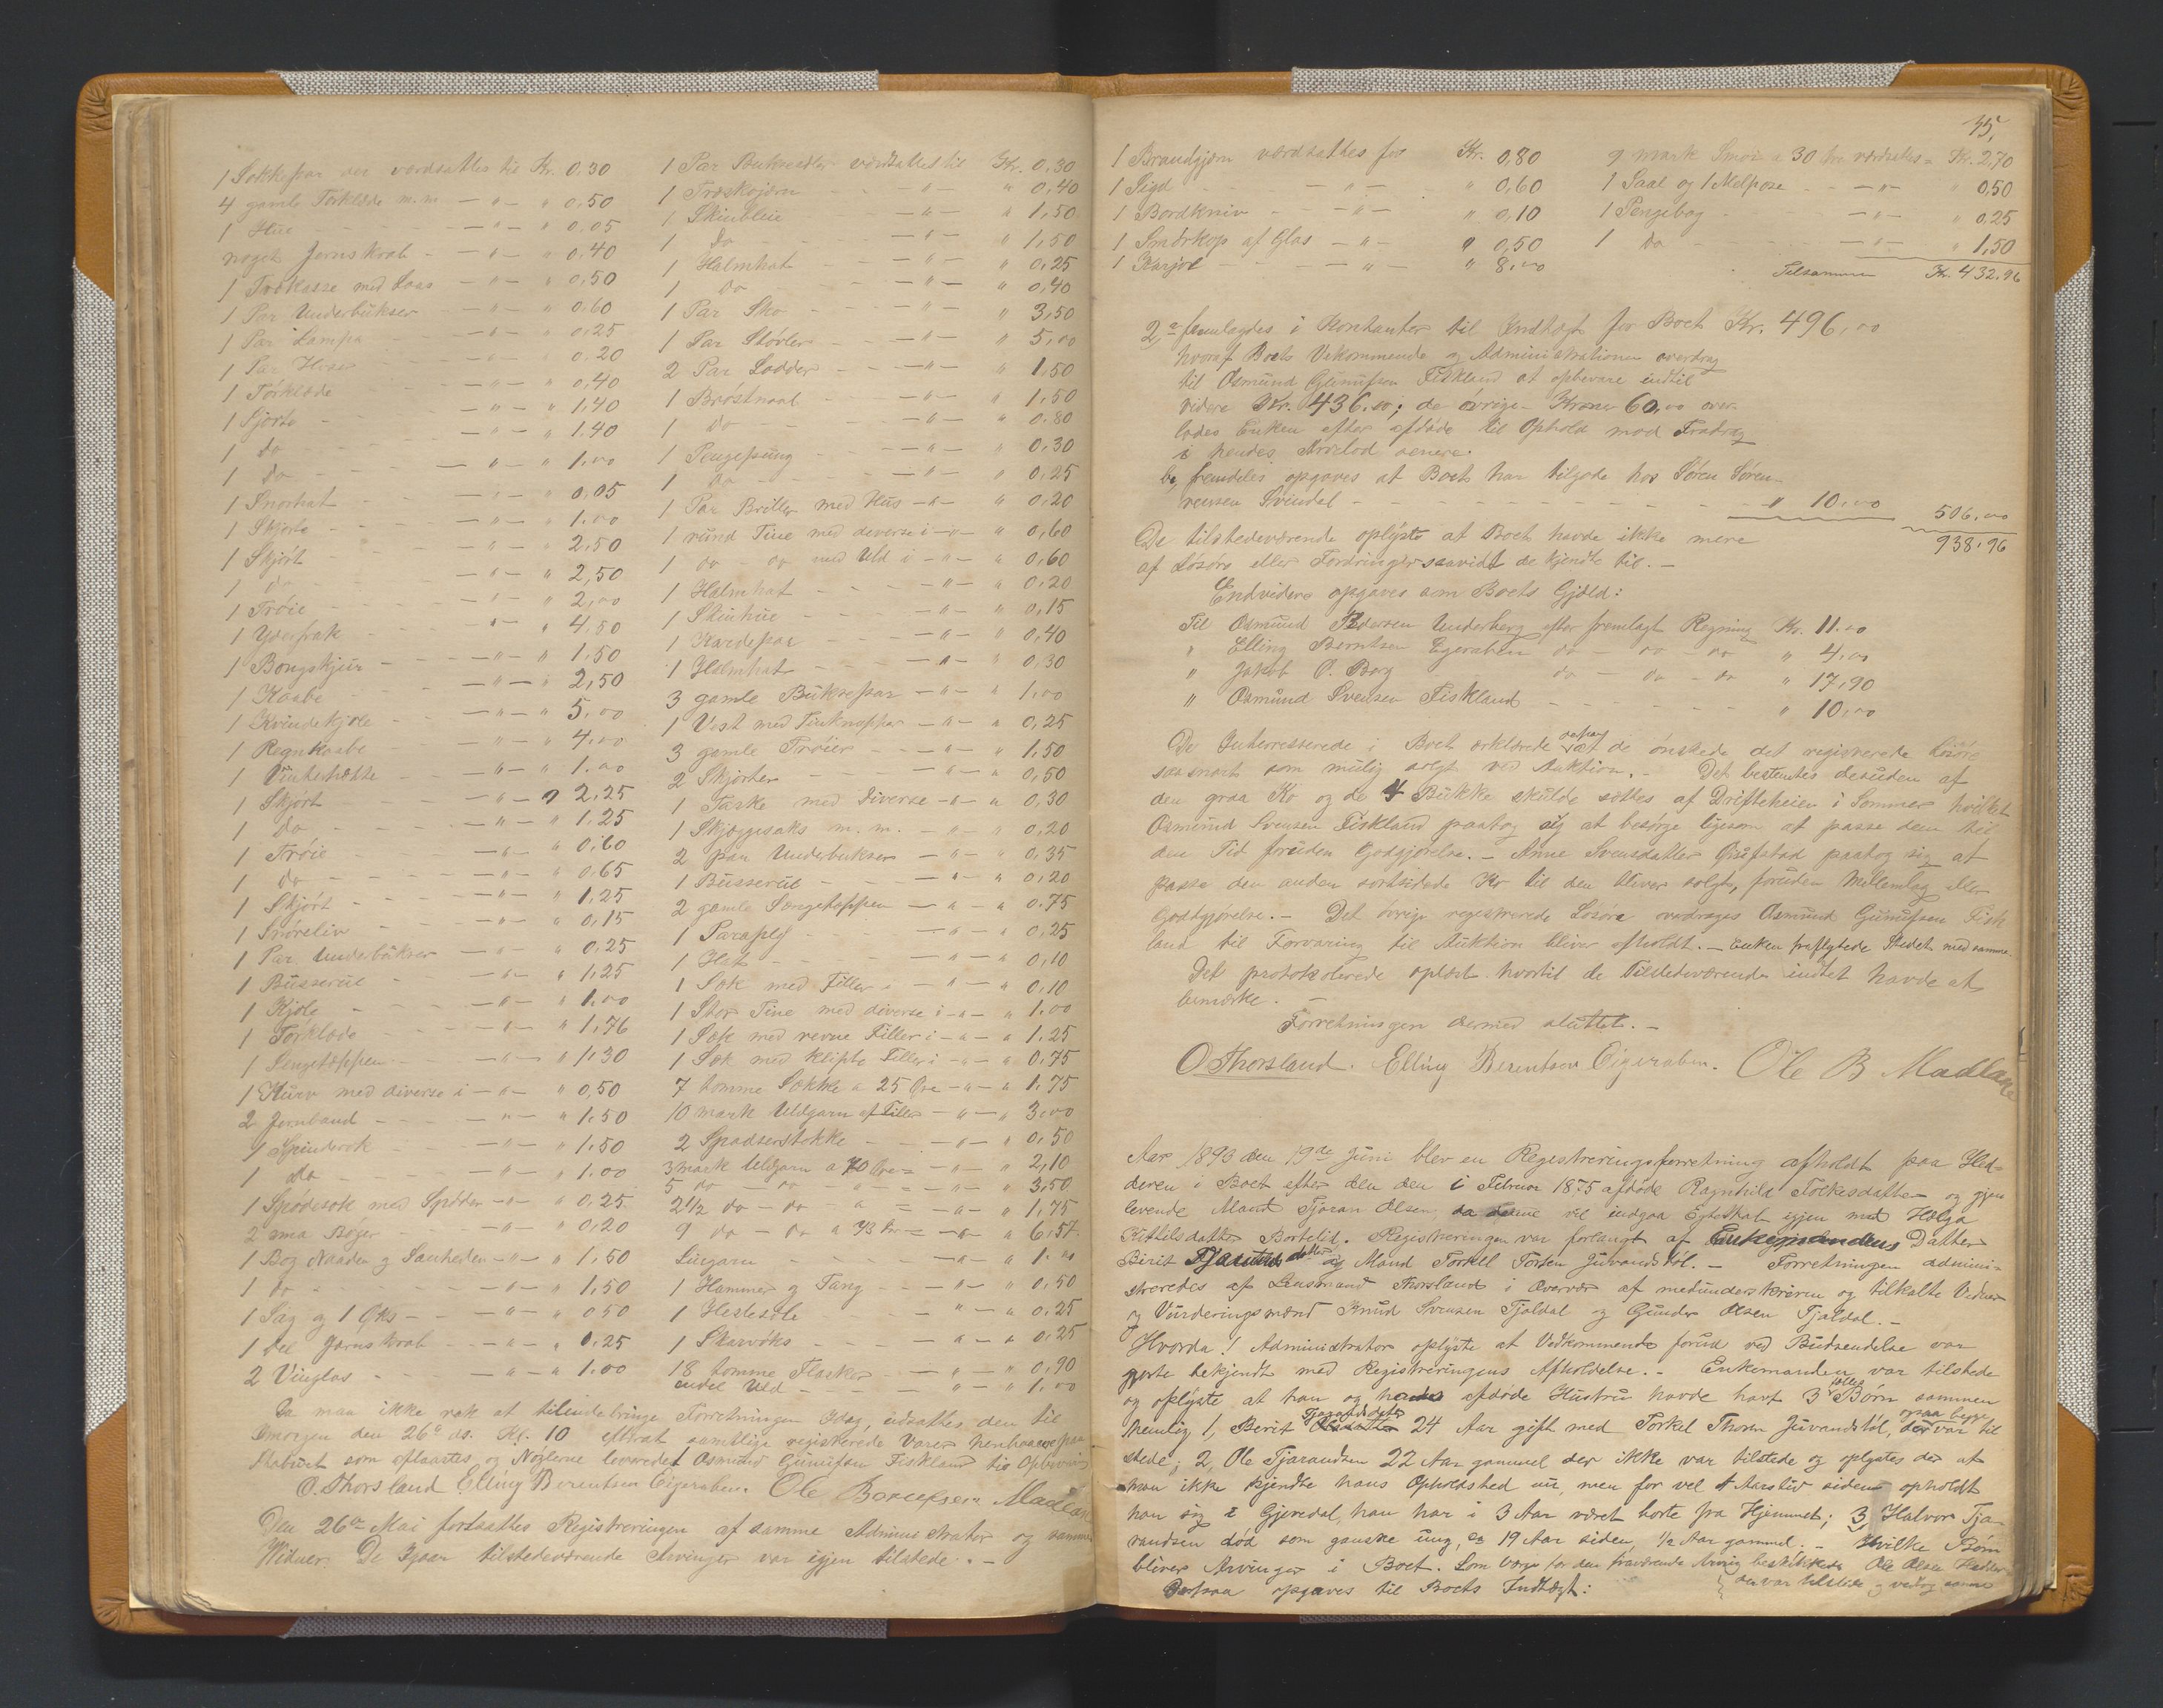 1 Sokkepar der værdsattes til Kr. 0,30
4 gamle Törklæde m.m — " — " 0,50
1 Hue - - - — " — " 0,05
noget Jernskrab - — " — " 0,40
1 Trækasse med Laas — " — " 0,50
1 Par Underbukser — " — " 0,60
1 Par Lampa — " — " 0,25
1 Par Hoser — " — " 0,20
1 Törklæde — " — " 0,40
1 Sjorte - — " — " 1,40
1 do - - — " — " 1,40
1 do - - — " — " 1,00
1 Snorhat — " — " 0,05
1 Skjorte — " — " 1,00
1 Skjört — " — " 2,50
1 do — " — " 2,50
1 Tröie — " — " 2,00
1 Yderfrak — " — " 4,50
1 — " — " 1,50
1 Kaabe — " — " 2,50
1 Kvindekjole — " — " 5,00
1 Regnkaabe — " — " 4,00
1 Vinterhætte — " — " 1,00
1 Skjört — " — " 2,25
1 Do — " — " 1,25
1 Tröie — " — " 0,60
1 do — " — " 0,65
1 Skjört — " — " 1,25
1 Snöreliv — " — " 0,15
1 Par Underbukser — " — " 0,25
1 Busserul — " — " 1,25
1 Kjole — " — " 1,00
1 Törklæde — " — " 1,76
1 Sengetæppen — " — " 1,30
1 Kurv med diverse i — " — " 0,50
2 Jernbaand — " — " 1,50
1 Spinderok — " — " 1,50
1 do — " — " 1,00
1 Spödesæk med Spöder — " — " 0,25
2 sma Böger — " — " 0,20
1 Bog Naaden og Sanheden — " — " 1,50
1 do - — " — " 1,50
1 Sag og 1 Öks — " — " 0,50
1 Del Jarnskrab — " — " 0,25
2 Vinglas - — " — " 1,00
1 Par Bukseseler værdsattes til Kr. 0,30
1 Træskojærn — " — " 0,40
1 — " — " 1,50
1 do — " — " 1,50
1 Halmhat — " — " 0,25
1 do — " — " 0,40
1 Par Sko — " — " 3,50
1 Par Stövler — " — " 5,00
2 Par Lodder — " — " 1,50
1 Bröstnaal — " — " 1,50
1 do — " — " 0,80
1 Pengepung — " — " 0,30
1 do — " — " 0,25
1 Par Briller med Hus — " — " 0,20
1 rund Tine med diverse i — " — " 0,60
1 do - do med Uld i — " — " 0,60
1 Halmhat — " — " 0,20
1 Skinhue — " — " 0,15
1 Kardepar — " — " 0,40
1 Halmhat — " — " 0,30
3 gamle Buksepar — " — " 1,00
1 Vest med Tinknapper — " — " 0,25
3 gamle Tröier — " — " 1,50
2 Skjorter — " — " 0,50
1 Taske med diverse — " — " 0,30
1 Skjæggesaks m. m. — " — " 0,20
2 par Underbukser — " — " 0,35
1 Busserul — " — " 0,20
2 gamle Sængetæppen — " — " 0,75
1 Paraply — " — " 0,25
1 Hat — " — " 0,10
1 Sæk med Filler — " — " 0,10
1 Stor Tine med diverse i — " — " 1,00
1 Sæk med revne Filler i — " — " 1,25
1 Sæk med klipte Filler i — " — " 0,75
7 tomme Sække a 25 Öre — " — " 1,75
10 mark Uldgarn af Filler — " — " 3,00
2 Spadserstokke — " — " 0,50
3 mark Uldgarn a 70 Öre — " — " 2,10
5 do — do — " — " — " 3,50
2 1/2 do — do — a — " — " 1,75
9 do — do a 73 Öre — " — " 6,57
Lingarn — " — " 1,00
1 Hammer og Tang — " — " 0,50
1 Hestesele — " — " 0,25
1 Skarvöks — " — " 0,25
18 tomme Flasker — " — " 0,90
endel Uld — " — " 1,00
Da man ikke rak at tilendebringe Forretningen idag, udsattes den til
imorgen den 26de ds. Kl. 10 efterat samtlige registrerede Varer henbaares paa
Staburet som aflaastes og Nöglerne leveredes Osmund Gunufsen Fiskland til Opbevaring
O. Thorsland Elling Berentsen Eigeraben. Ole Berentsen Madland
Den 26de Mai fortsattes Registreringen af samme Administrator og samme
Vidner. De igaar tilstedeværende Arvinger var igjen tilstede. -
35.
1 Brandjern værdsattes for Kr. 0,80
1 Sigd — " — " 0,60
1 Bordkniv — " — " 0,10
1 Smörkop af Glas — " — " 0,50
1 Karjol — " — " 8,00
9 mark Smör a 30 öre værdsattes = Kr. 2,70
1 Saal og 1 Melpose — " — " 0,50
1 Pengebog — " — " 0,25
1 do — " — " 1,50
Tilsammen Kr. 432,96
2, a fremlagdes i Kontanter til Indtægt for Boet Kr. 496,00
hvoraf Boets Vedkommende og Administrationen overdrog
til Osmund Gunufsen Fiskland at opbevare indtil
videre Kr. 436.00; de övrige Kroner 60,00 over-
lodes Enken efter afdöde til Ophold mod Fradrag
i hendes Arvelod senere.
b, fremdeles opgaves at Boet har tilgode hos Sören Sören-
rensen Svindal - - - " 10,00 506,00
938,96
De tilstedeværende oplyste at Boet havde ikke mere
af Lösöre eller Fordringer saavidt de kjendte til. -
Endvidere opgaves som Boets Gjæld:
Til Osmund Pedersen Underberg efter fremlagt Regning Kr. 11.00
" Elling Berntsen Egeraben do - do - do " 4,00
" Jakob O. Berg do - do - do " 17,90
" Osmund Svensen Fiskland - - - " 10,00
De Interesserede i Boet erklærede at de önskede det registrerede Lösöre
saasnart som mulig solgt ved Auktion. - Det bestemtes desuden af
den graa Ko og de 4 Bukke skulde sættes af Drifteheien i Sommer hvilket
Osmund Svensen Fiskland paatog sig at besörge ligesom at passe dem til
den Tid foruden Godgjörelse. - Anne Svensdatter paatog sig at
passe den anden sortsidede Ko til den bliver solgt, foruden Mellemlag eller
Godtgjörelse. - Det övrige registrerede Lösöre overdrages Osmund Gunufsen Fisk
land til Forvaring til Auktion bliver afholdt. - Enken fraflyttede Stedet med samme.
Det protokolerede oplæst hvortil de Tilstedeværende intet havde at
bemærke. -
Forretningen dermed sluttet. -
O Thorsland. Elling Berentsen Eigeraben. Ole B Madland
Aar 1893 den 19de Juni blev en Registreringsforretning afholdt paa Hed-
deren i Boet efter den den 1 Februar 1875 afdöde Ragnhild Tolkesdatter og gjen
levende Mand Tjaran Olsen, da denne vil indgaa Egteskab igjen med Helga
Kittilsdatter Bortelid. Registreringen var forlangt af Enkemandens Datter
Birit datter og Mand Torkel Torsen Juvandstöl. - Forretningen admini-
streredes af Lensmand Thorsland i Overvær af medunderskrevne og tilkalte Vidner
og Vurderingsmænd Knud Svensen Tjaldal og Gunder Olsen Tjaldal. -
Hvorda! Administrator oplyste at Vedkommende forud ved Budsendelse var
gjorte bekjendt med Registreringens Afholdelse. - Enkemanden var tilstede
og oplyste at han og hendes afdöde Hustru havde havt 3 fælles Börn sammen
nemlig 1, Berit Tjarandsdatter 24 Aar gift med Torkel Thorsn Juvandstöl, ogsaa begge der var til
stede; 2, Ole Tjarandsen 22 Aar gammel der ikke var tilstede og oplystes der at
man ikke kjendte hans Opholdsted nu, men for vel 1 Aarstid siden opholdt
han sig i Gjerdal, han har i 3 Aar været borte fra Hjemmet; 3 Halvor Tja-
randsen död som ganske ung, ca 19 Aar siden, 1/2 Aar gammel. - Hvilke Börn
bliver Arvinger i Boet. Som Verge for den fraværende Arving beskikkedes Ole Olsen Hedder
der var tilstede og vedtog samme
Derpaa opgaves til Boets Indtægt: